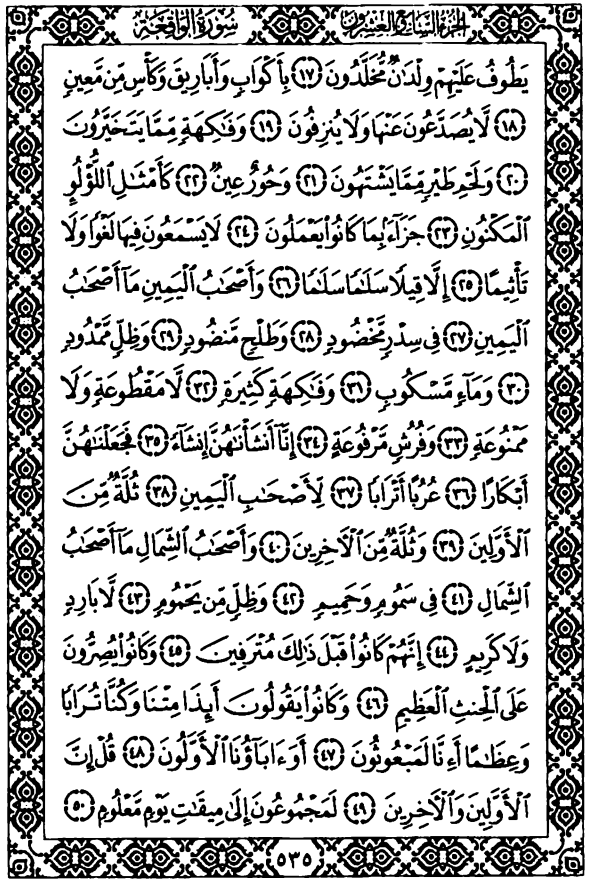 الجزء السابع والعشرون سورة الواقعة
يَطُوفُ عَلَيْهِمْ وِلْدَانٌ مُّخَلَّدُونَ ١٧ بِأَكْوَابٍ وَأَبَارِيقَ وَكَأْسٍ مِّن مَّعِينٍ
١٨ لَّا يُصَدَّعُونَ عَنْهَا وَلَا يُنزِفُونَ ١٩ وَفَاكِهَةٍ مِّمَّا يَتَخَيَّرُونَ
٢٠ وَلَحْمِ طَيْرٍ مِّمَّا يَشْتَهُونَ ٢١ وَحُورٌ عِينٌ ٢٢ كَأَمْثَالِ ٱللُّؤْلُوِٕ
ٱلْمَكْنُونِ ٢٣ جَزَآءًۢ بِمَا كَانُوا۟ يَعْمَلُونَ ٢٤ لَا يَسْمَعُونَ فِيهَا لَغْوًا وَلَا
تَأْثِيمًا ٢٥ إِلَّا قِيلًا سَلَٰمًا سَلَٰمًا ٢٦ وَأَصْحَٰبُ ٱلْيَمِينِ مَآ أَصْحَٰبُ
ٱلْيَمِينِ ٢٧ فِى سِدْرٍ مَّخْضُودٍ ٢٨ وَطَلْحٍ مَّنضُودٍ ٢٩ وَظِلٍّ مَّمْدُودٍ
٣٠ وَمَآءٍ مَّسْكُوبٍ ٣١ وَفَٰكِهَةٍ كَثِيرَةٍ ٣٢ لَّا مَقْطُوعَةٍ وَلَا
مَمْنُوعَةٍ ٣٣ وَفُرُشٍ مَّرْفُوعَةٍ ٣٤ إِنَّآ أَنشَأْنَٰهُنَّ إِنشَآءً ٣٥ فَجَعَلْنَٰهُنَّ
أَبْكَارًا ٣٦ عُرُبًا أَتْرَابًا ٣٧ لِّأَصْحَٰبِ ٱلْيَمِينِ ٣٨ ثُلَّةٌ مِّنَ
ٱلْأَوَّلِينَ ٣٩ وَثُلَّةٌ مِّنَ ٱلْءَاخِرِينَ ٤٠ وَأَصْحَٰبُ ٱلشِّمَالِ مَآ أَصْحَٰبُ
ٱلشِّمَالِ ٤١ فِى سَمُومٍ وَحَمِيمٍ ٤٢ وَظِلٍّ مِّن يَحْمُومٍ ٤٣ لَّا بَارِدٍ
وَلَا كَرِيمٍ ٤٤ إِنَّهُمْ كَانُوا۟ قَبْلَ ذَٰلِكَ مُتْرَفِينَ ٤٥ وَكَانُوا۟ يُصِرُّونَ
عَلَى ٱلْحِنثِ ٱلْعَظِيمِ ٤٦ وَكَانُوا۟ يَقُولُونَ أَئِذَا مِتْنَا وَكُنَّا تُرَابًا
وَعِظَٰمًا أَءِنَّا لَمَبْعُوثُونَ ٤٧ أَوَءَابَآؤُنَا ٱلْأَوَّلُونَ ٤٨ قُلْ إِنَّ
ٱلْأَوَّلِينَ وَٱلْءَاخِرِينَ ٤٩ لَمَجْمُوعُونَ إِلَىٰ مِيقَٰتِ يَوْمٍ مَّعْلُومٍ ٥٠
٥٣٥